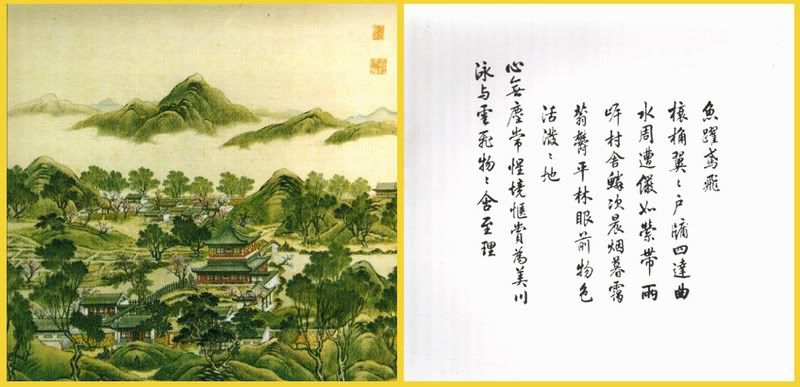 魚躍鳶飛
榱桷翼〻戶牖四達曲
水周遭儼如縈帶兩
岸村舍鱗次晨烟暮靄
蓊鬱平林眼前物色
活潑〻地
心無塵常惺境愜賞為美川
泳与雲飛物〻含至理